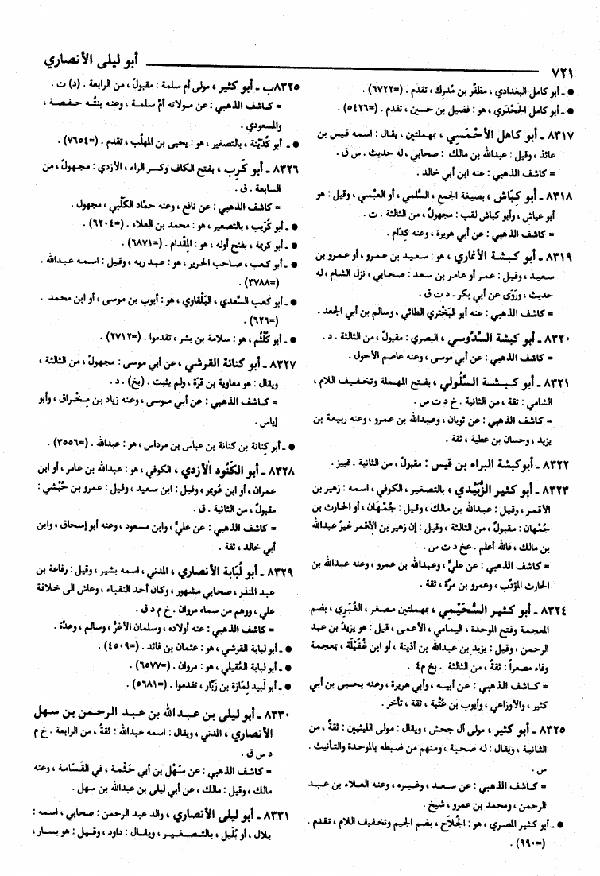 ٧٢١ أبو ليلى الأنصاري
● ـ أبو كامل البغدادي ، مظفّر بن مُدرك ، تقدم . (=٦٧٢٢)
● ـ أبو كامل الجَحْدَري ، هو : فضيل بن حسين ، تقدم . (=٥٤٢٦)
٨٣١٧ ـ أبو كاهل الأحْمَسي ، بمهملتين ، يقال : اسمه قيس بن
عائذ ، وقيل : عبدالله بن مالك : صحابي ، له حديث . س ق .
= كاشف الذهبي : عنه ابن أبي خالد .
٨٣١٨ ـ أبو كِباش ، بصيغة الجمع ، السُّلمي ، أو العَيْشي ، وقيل : هو
أبو عياش ، وأبو كباش لقب : مجهولٌ ، من الثالثة . ت .
= كاشف الذهبي : عن أبي هريرة ، وعنه كِدَام .
٨٣١٩ ـ أبو كبشة الأنماري ، هو : سعيد بن عمرو ، أو عمرو بن
سعيد ، وقيل : عمر أو عامر بن سعد : صحابي ، نزل الشام ، له
حديث ، وروَى عن أبي بكر . د ت ق .
= كاشف الذهبي : عنه أبو البَختري الطائي ، وسالم بن أبي الجعد .
٨٣٢٠ ـ أبو كبشة السَّدُوسي ، البصري : مقبولٌ ، من الثالثة . د .
= كاشف الذهبي : عن أبي موسى ، وعنه عاصم الأحول .
٨٣٢١ ـ أبو كبشة السَّلُولي ، بفتح المهملة وتخفيف اللام ،
الشامي : ثقة ، من الثانية . خ د ت س .
= كاشف الذهبي : عن ثوبان ، وعبدالله بن عمرو ، وعنه ربيعة بن
يزيد ، وحسان بن عطية ، ثقة .
٨٣٢٢ ـ أبو كبشة البراء بن قيس : مقبولٌ ، من الثانية . تمييز .
٨٣٢٣ ـ أبو كثير الزُّبَيْدي ، بالتصغير ، الكوفي ، اسمه : زهير بن
الأقمر ، وقيل : عبدالله بن مالك ، وقيل : جُمْهان ، أو الحارث بن
جُمْهان : مقبولٌ ، من الثالثة ، وقيل : إن زهير بن الأقمر غيرُ عبدالله
بن مالك ، فالله أعلم . عخ د ت س .
= كاشف الذهبي : عن عليّ ، وعبدالله بن عمرو ، وعنه عبدالله بن
الحارث المؤدّب ، وعمرو بن مرّة ، ثقة .
٨٣٢٤ ـ أبو كثير السُّحَيْمي ، بمهملتين مصغر ، الغُبَري ، بضم
المعجمة وفتح الموحدة ، اليمامي ، الأعمى ، قيل : هو يزيد بن عبد
الرحمن ، وقيل : يزيد بن عبدالله بن أُذينة ، أو ابن غُفَيْلة ، بمعجمة
وفاء مصغراً : ثقةٌ ، من الثالثة . بخ م٤ .
= كاشف الذهبي : عن أبيه ، وأبي هريرة ، وعنه يحيى بن أبي
كثير ، والأوزاعي ، وأيوب بن عُتْبة ، ثقة ، تأخر .
٨٣٢٥ ـ أبو كثير ، مولى آل جحش ، ويقال : مولى الليثيين : ثقةٌ ، من
الثانية ، ويقال : له صحبة ، ومنهم من ضبطه بالموحدة والتأنيث .
س .
= كاشف الذهبي : عن سعد ، وغيره ، وعنه العلاء بن عبد
الرحمن ، ومحمد بن عمرو ، شيخ .
● ـ أبو كثير المصري ، هو : الجُلَاح ، بضم الجيم وتخفيف اللام ، تقدم .
(=٩٩٠) .
٨٣٢٥ب ـ أبو كثير ، مولى أم سلمة : مقبولٌ ، من الرابعة . (د) ت .
= كاشف الذهبي : عن مولاته أمّ سلمة ، وعنه بنتُه حفصة ،
والمسعودي .
● ـ أبو كُدَيْنة ، بالتصغير ، هو : يحيى بن المهلّب ، تقدم . (=٧٦٥٤)
٨٣٢٦ ـ أبو كَرِب ، بفتح الكاف وكسر الراء ، الأزدي : مجهولٌ ، من
السابعة . ق .
= كاشف الذهبي : عن نافع ، وعنه حمّاد الكلْبي ، مجهول .
● ـ أبو كُرَيْب ، بالتصغير ، هو : محمد بن العلاء . (=٦٢٠٤)
● ـ أبو كريمة ، بفتح أوله ، هو : المِقْدام . (=٦٨٧١)
● ـ أبو كعب ، صاحب الحرير ، هو : عبد ربه ، وقيل : اسمه عبدالله .
(=٣٧٨٨)
● ـ أبو كعب السَّعْدي ، البَلْقاوي ، هو : أيوب بن موسى ، أو ابن محمد .
(=٦٢٦)
● ـ أبو كُلْثُم ، هو : سلامة بن بشر ، تقدموا . (=٢٧١٢)
٨٣٢٧ ـ أبو كنانة القرشي ، عن أبي موسى : مجهولٌ ، من الثالثة ،
ويقال : هو معاوية بن قرّة ، ولم يثبت . (بخ) . د .
= كاشف الذهبي : عن أبي موسى ، وعنه زياد بن مِخْراق ، وأبو
إياس .
● ـ أبو كنانة بن كنانة بن عباس بن مرداس ، هو : عبدالله . (=٣٥٥٦)
٨٣٢٨ ـ أبو الكَنُود الأزدي ، الكوفي ، هو : عبدالله بن عامر ، أو ابن
عمران ، أو ابن عُويمر ، وقيل : ابن سعيد ، وقيل : عمرو بن حُبْشي :
مقبولٌ ، من الثانية . ق .
= كاشف الذهبي : عن عليّ ، وابن مسعود ، وعنه أبو إسحاق ، وابن
أبي خالد ، ثقة .
٨٣٢٩ ـ أبو لُبَابة الأنصاري ، المدني ، اسمه بشير ، وقيل : رفاعة بن
عبد المنذر ، صحابي مشهور ، وكان أحد النقباء ، وعاش إلى خلافة
علي ، ووهم من سماه مروان . خ م د ق .
= كاشف الذهبي : عنه أولاده ، وسلمان الأغرُّ ، وسالم ، وعدّة .
● ـ أبو لبابة القرشي ، هو : عثمان بن فائد . (=٤٥٠٩)
● ـ أبو لبابة العُقيلي ، هو : مروان . (=٦٥٧٧)
● ـ أبو لَبيد لِمَازة بن زَبَّار ، تقدموا . (=٥٦٨١)
٨٣٣٠ ـ أبو ليلى بن عبدالله بن عبد الرحمن بن سهل
الأنصاري ، المدني ، ويقال : اسمه عبدالله : ثقةٌ ، من الرابعة . خ م
د س ق .
= كاشف الذهبي : عن سَهْل بن أبي حَثْمة ، في القَسَامة ، وعنه
مالك ، وقيل : مالك ، عن أبي ليلى بن عبدالله بن سهل .
٨٣٣١ ـ أبو ليلى الأنصاري ، والد عبد الرحمن : صحابي ، اسمه :
بلال ، أو بُلَيل ، بالتصغير ، ويقال : داود ، وقيل : هو يسار ،